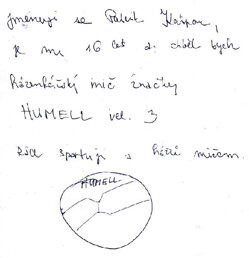 jmenuji se Patrik Kašpar,
je mi 16 let a chtěl bych
házenkářský míč značky
HUMELL vel. 3
Rád sportuji s házecím míčem.
HUMELL